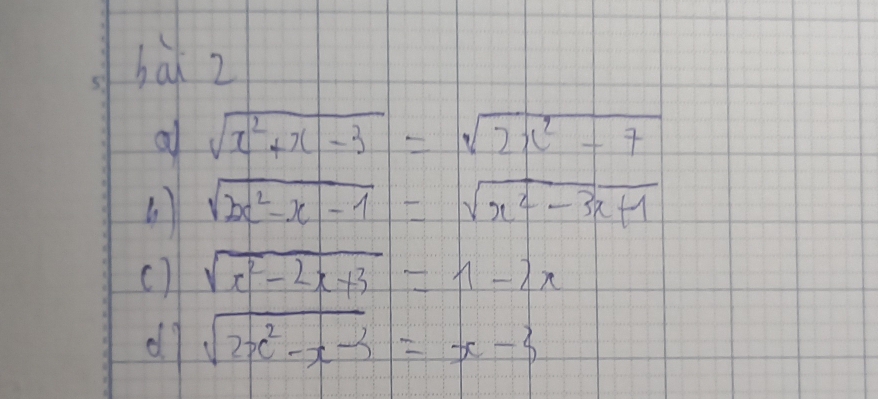 bài 2
a) √(x² + x - 3) = √(2x² - 7)
b) √(2x² - x - 1) = √(x² - 3x + 1)
c) √(x² - 2x + 3) = 1 - 2x
d) √(2x² - x - 3) = x - 3